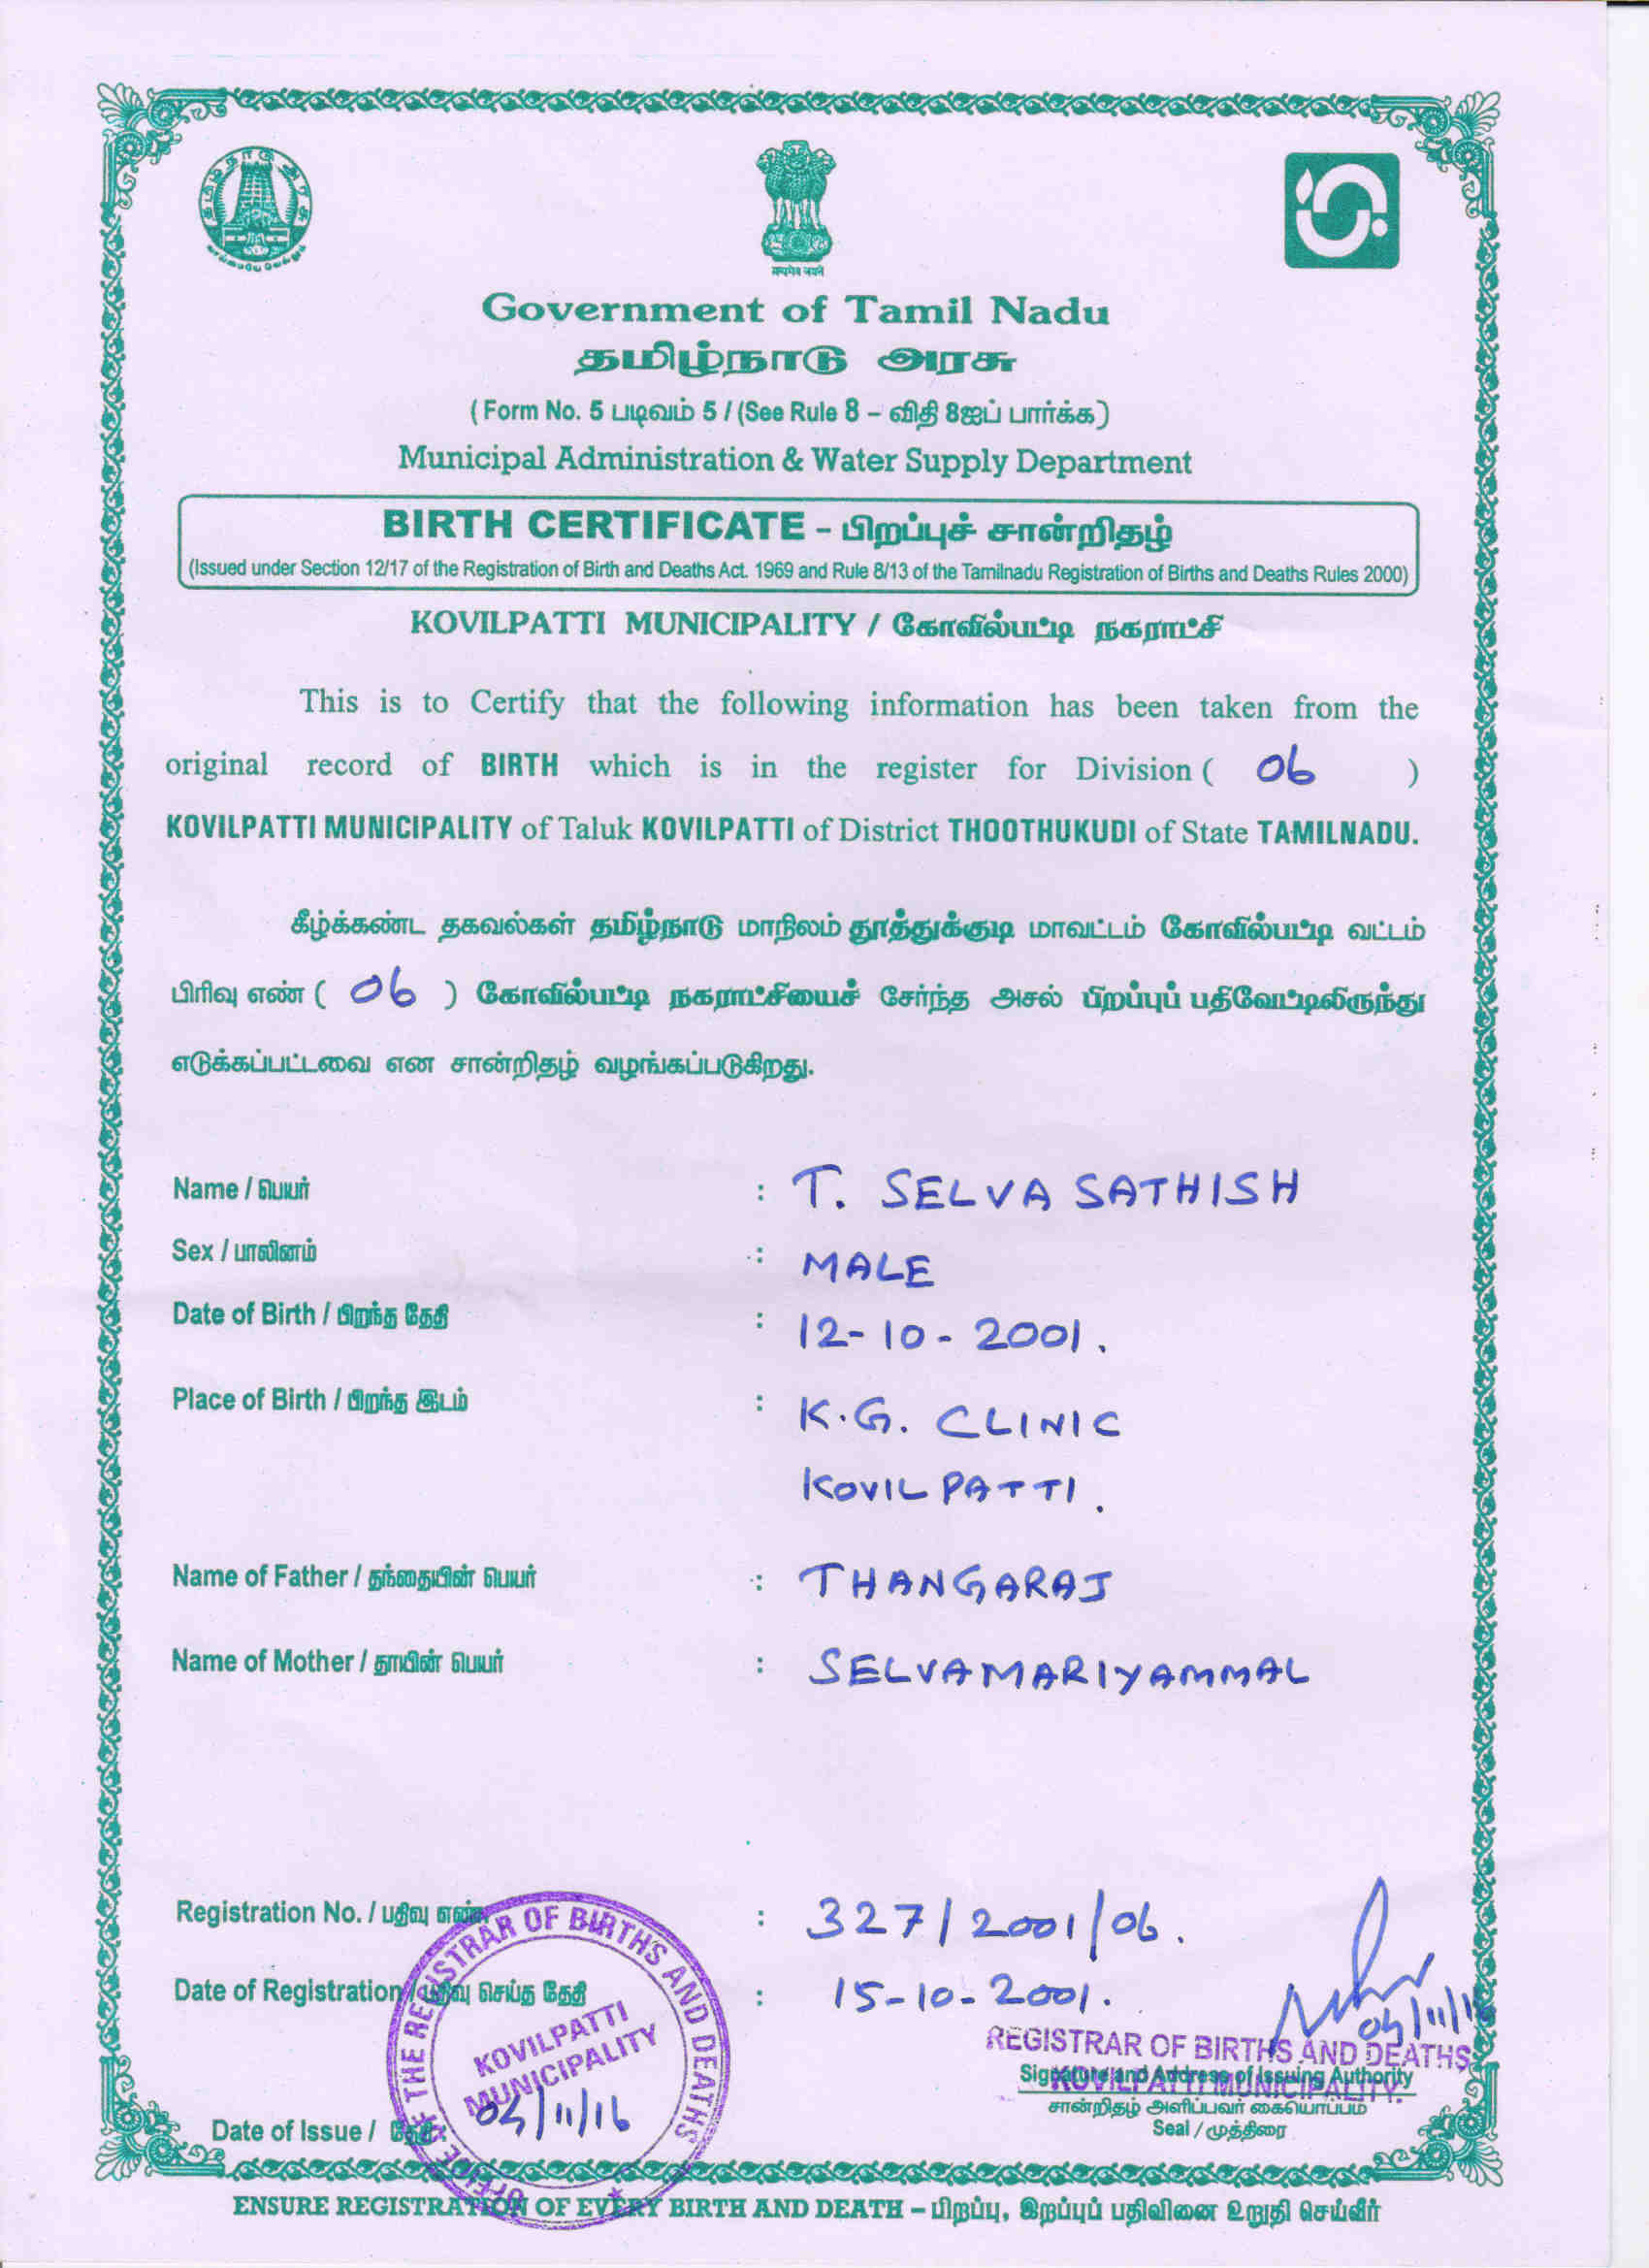 தமிழ்நாடு அரசு
வாய்மையே வெல்லும்
सत्यमेव जयते
Government of Tamil Nadu
தமிழ்நாடு அரசு
( Form No. 5 படிவம் 5 / (See Rule 8 – விதி 8ஐப் பார்க்க)
Municipal Administration & Water Supply Department
BIRTH CERTIFICATE - பிறப்புச் சான்றிதழ்
(Issued under Section 12/17 of the Registration of Birth and Deaths Act. 1969 and Rule 8/13 of the Tamilnadu Registration of Births and Deaths Rules 2000)
KOVILPATTI MUNICIPALITY / கோவில்பட்டி நகராட்சி
This is to Certify that the following information has been taken from the
original record of BIRTH which is in the register for Division ( 06 )
KOVILPATTI MUNICIPALITY of Taluk KOVILPATTI of District THOOTHUKUDI of State TAMILNADU.
கீழ்க்கண்ட தகவல்கள் தமிழ்நாடு மாநிலம் தூத்துக்குடி மாவட்டம் கோவில்பட்டி வட்டம்
பிரிவு எண் ( 06 ) கோவில்பட்டி நகராட்சியைச் சேர்ந்த அசல் பிறப்புப் பதிவேட்டிலிருந்து
எடுக்கப்பட்டவை என சான்றிதழ் வழங்கப்படுகிறது.
Name / பெயர் : T. SELVA SATHISH
Sex / பாலினம் : MALE
Date of Birth / பிறந்த தேதி : 12-10-2001.
Place of Birth / பிறந்த இடம் : K.G. CLINIC
KOVILPATTI.
Name of Father / தந்தையின் பெயர் : THANGARAJ
Name of Mother / தாயின் பெயர் : SELVAMARIYAMMAL
Registration No. / பதிவு எண் : 327/2001/06.
Date of Registration / பதிவு செய்த தேதி : 15-10-2001.
OFFICE OF THE REGISTRAR OF BIRTHS AND DEATHS
KOVILPATTI
MUNICIPALITY
REGISTRAR OF BIRTHS AND DEATHS
KOVILPATTI MUNICIPALITY.
Signature and Address of Issuing Authority
சான்றிதழ் அளிப்பவர் கையொப்பம்
Seal / முத்திரை
Date of Issue / தேதி
ENSURE REGISTRATION OF EVERY BIRTH AND DEATH – பிறப்பு, இறப்புப் பதிவினை உறுதி செய்வீர்